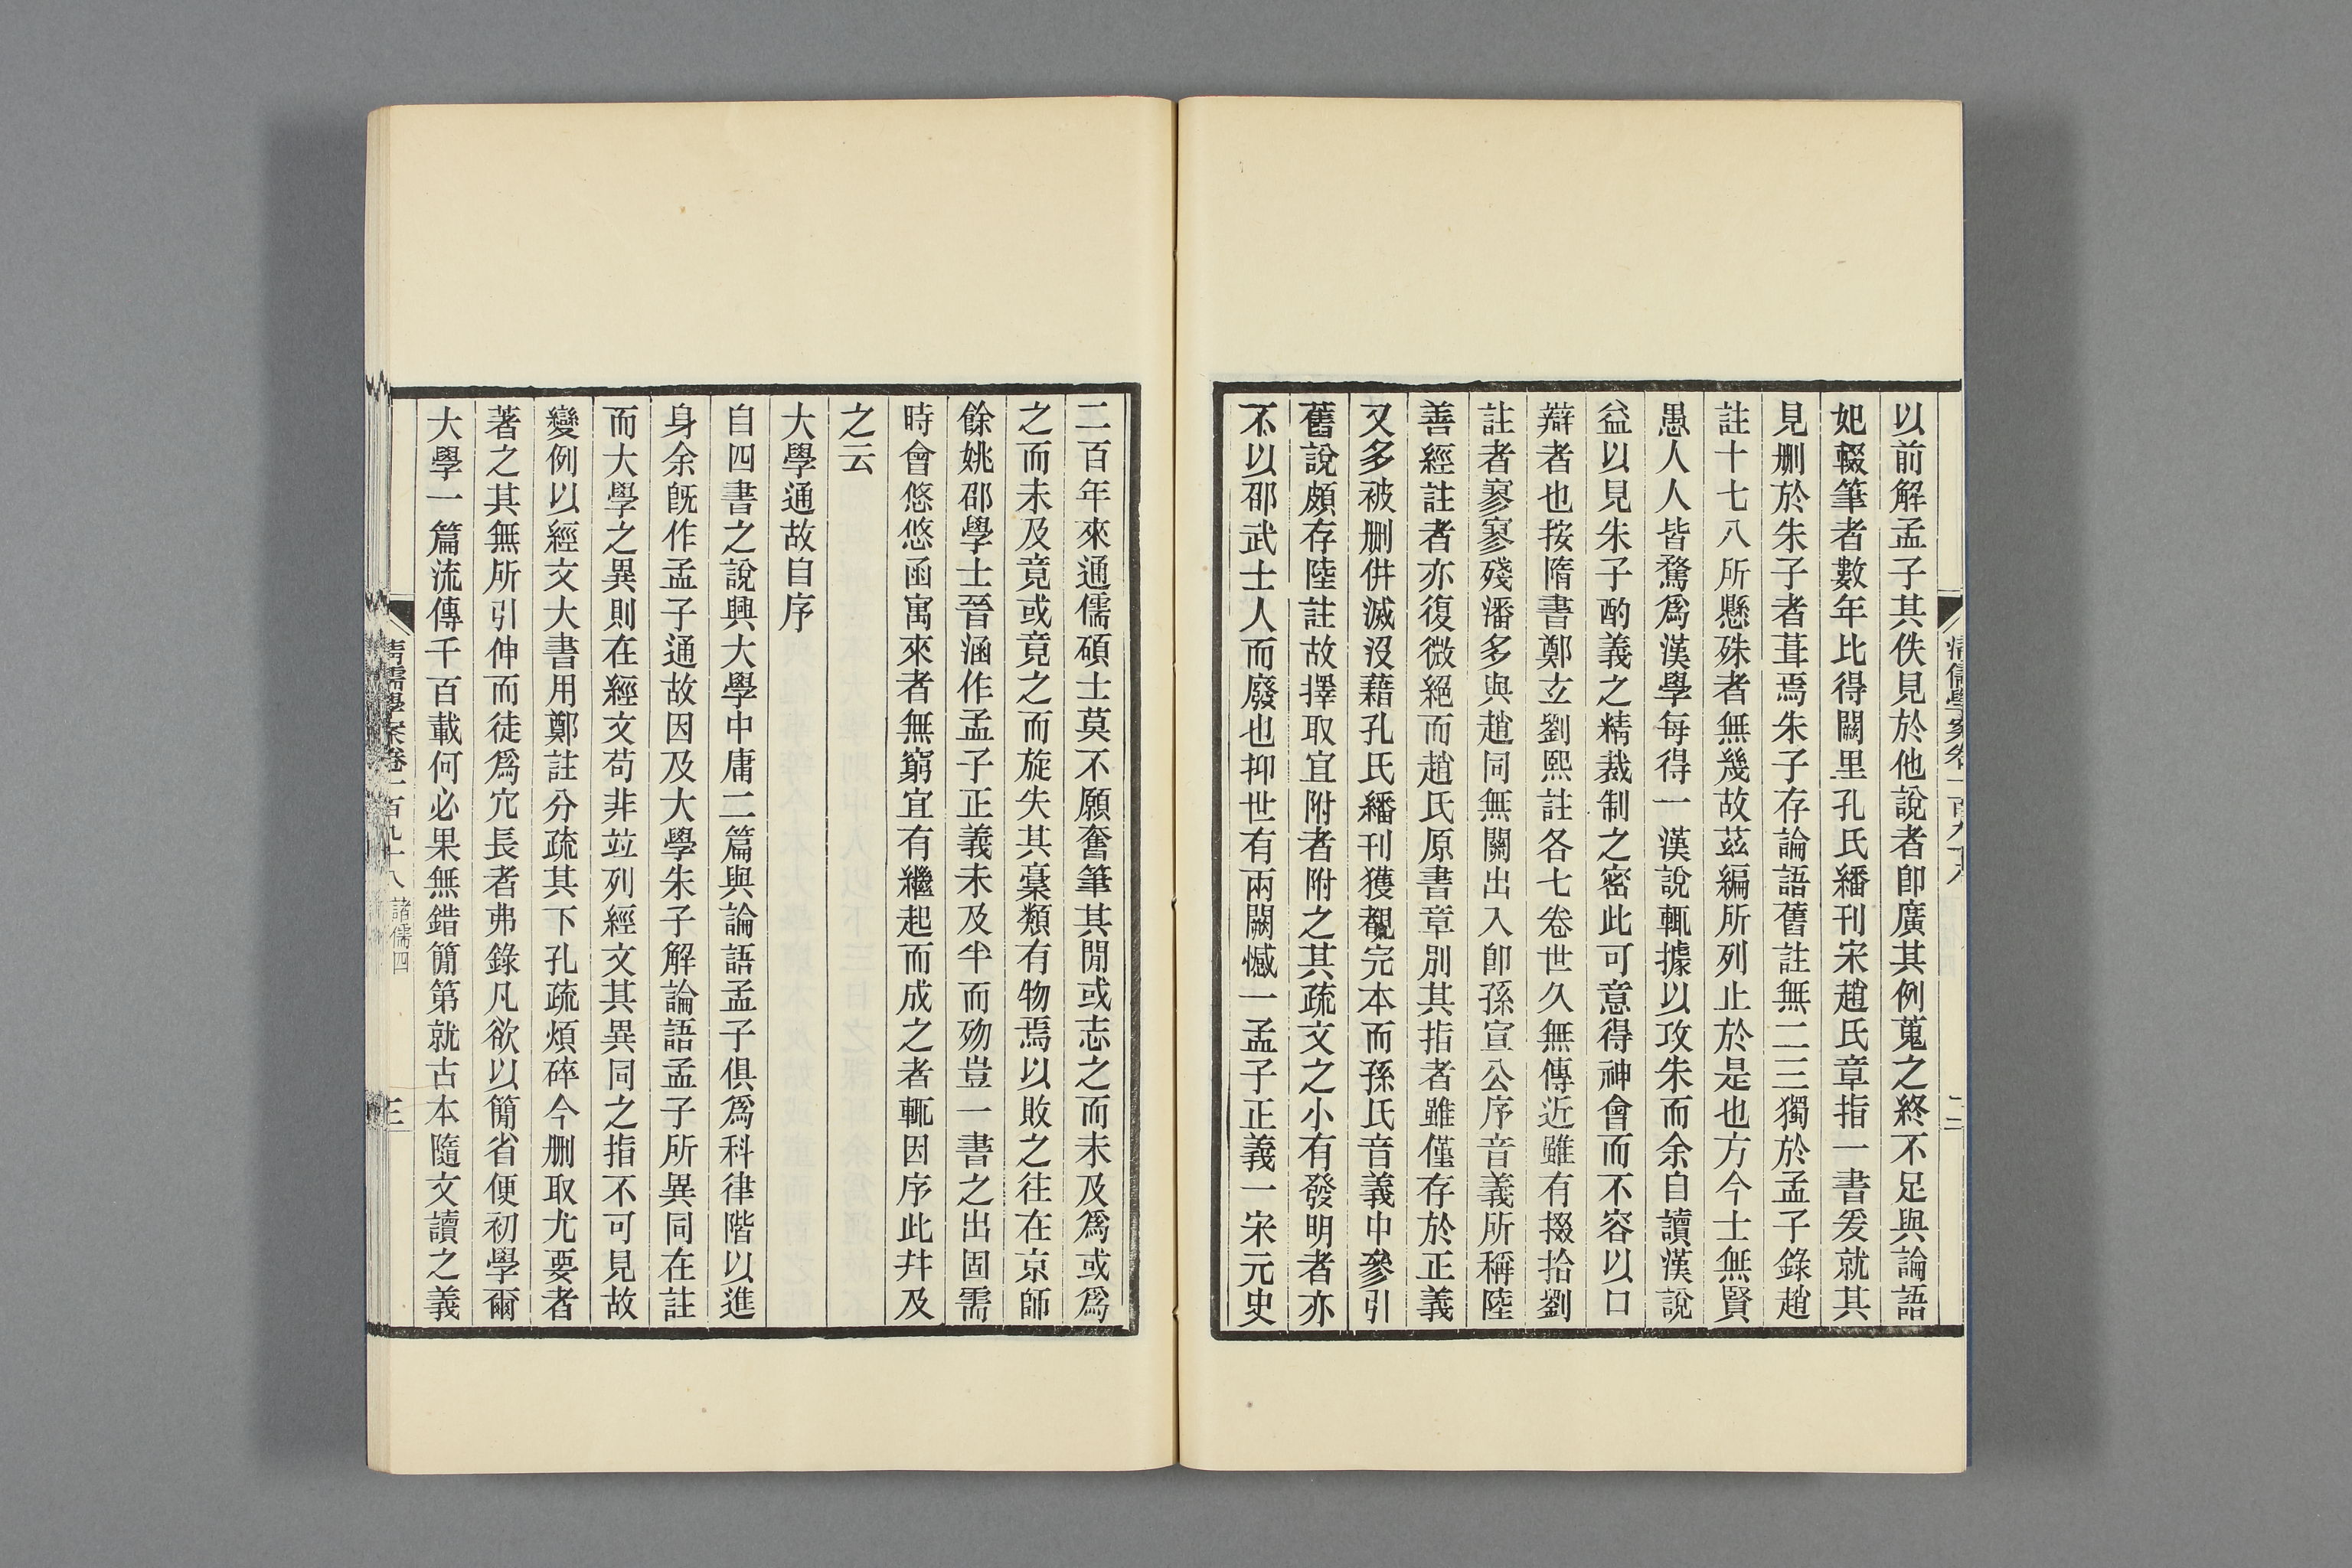 以前解孟子其佚見於他說者卽廣其例蒐之終不足與論語
妃輟筆者數年比得闕里孔氏繙刊宋趙氏章指一書爰就其
見刪於朱子者葺焉朱子存論語舊註無二三獨於孟子錄趙
註十七八所懸殊者無幾故茲編所列止於是也方今士無賢
愚人人皆騖爲漢學每得一漢說輒據以攻朱而余自讀漢說
益以見朱子酌義之精裁制之密此可意得神會而不容以口
辯者也按隋書鄭玄劉熙註各七卷世久無傳近雖有掇拾劉
註者寥寥殘瀋多與趙同無關出入卽孫宣公序音義所稱陸
善經註者亦復微絕而趙氏原書章別其指者雖僅存於正義
又多被刪倂滅沒藉孔氏繙刊獲覩完本而孫氏音義中參引
舊說頗存陸註故擇取宜附者附之其疏文之小有發明者亦
不以邵武士人而廢也抑世有兩闕憾一孟子正義一宋元史
二百年來通儒碩士莫不願奮筆其閒或志之而未及爲或爲
之而未及竟或竟之而旋失其稾類有物焉以敗之往在京師
餘姚邵學士晉涵作孟子正義未及半而歾豈一書之出固需
時會悠悠函寓來者無窮宜有繼起而成之者輒因序此幷及
之云
大學通故自序
自四書之說興大學中庸二篇與論語孟子俱爲科律階以進
身余旣作孟子通故因及大學朱子解論語孟子所異同在註
而大學之異則在經文苟非竝列經文其異同之指不可見故
變例以經文大書用鄭註分疏其下孔疏煩碎今刪取尤要者
著之其無所引伸而徒爲冗長者弗錄凡欲以簡省便初學爾
大學一篇流傳千百載何必果無錯簡第就古本隨文讀之義
清儒學案卷一百九十八 諸儒四